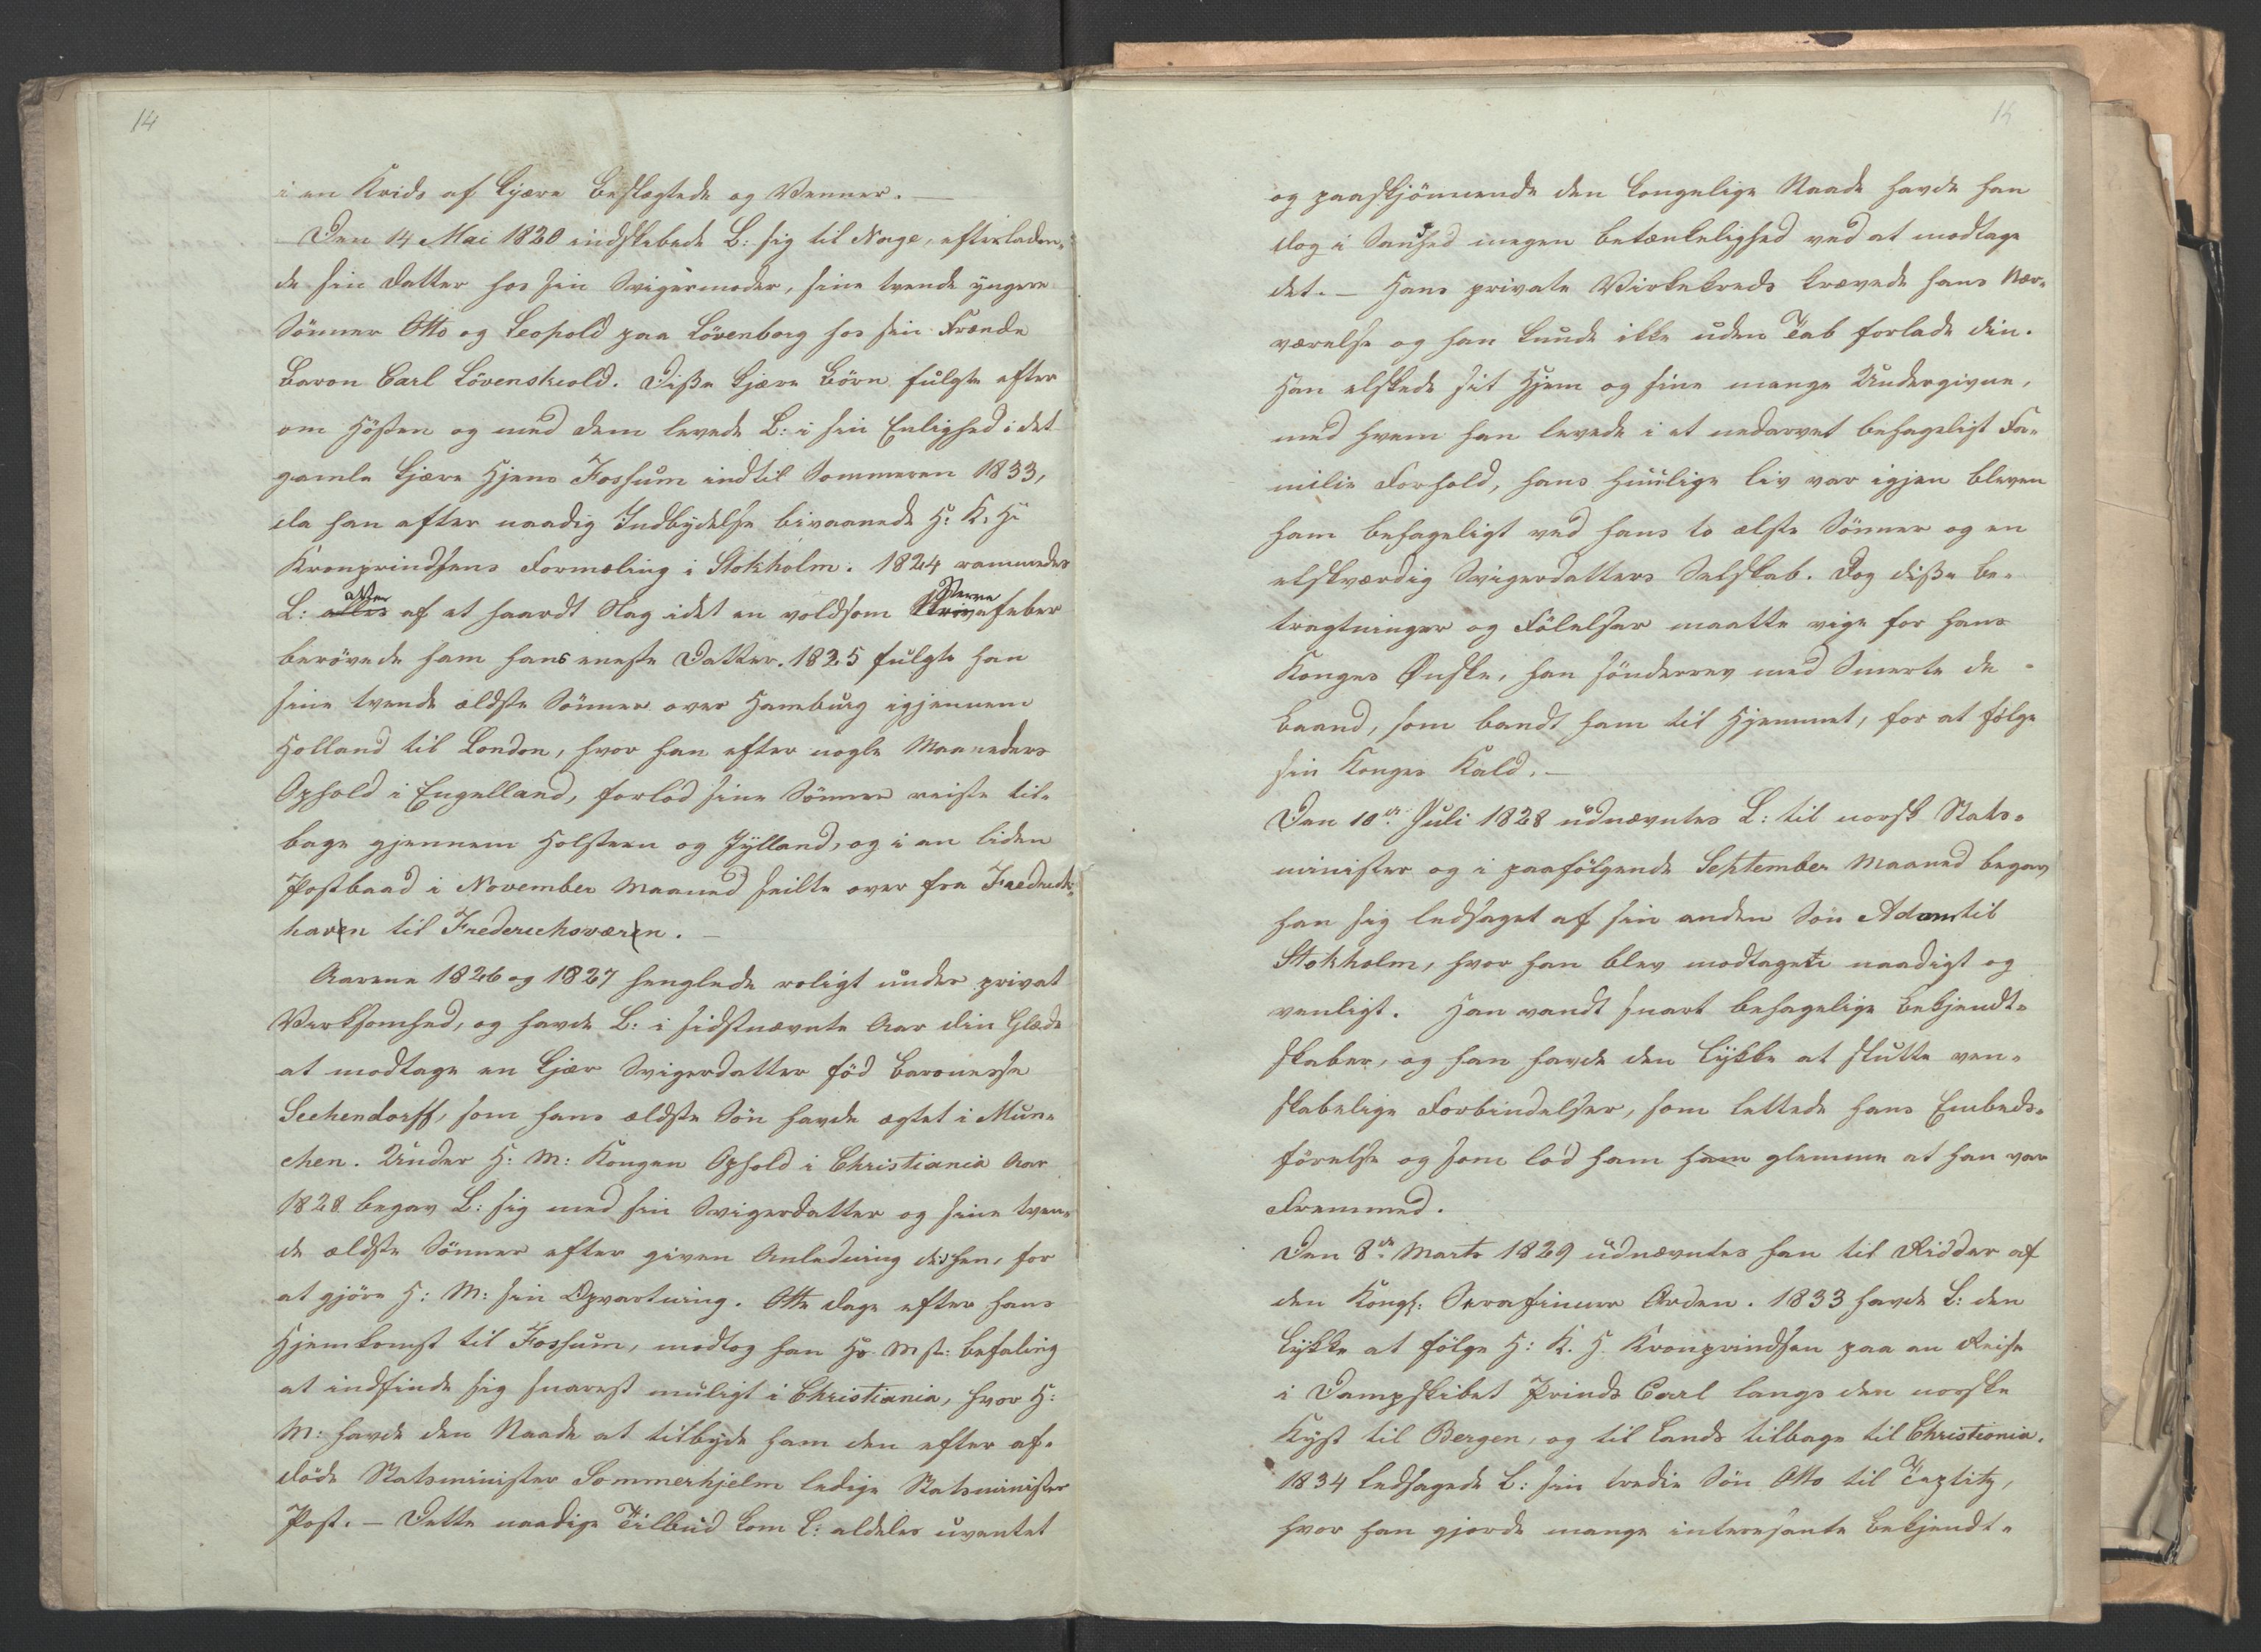 14
i en Kreds af kjære Beslægtede og Venner. —
Den 14 Mai 1820 indskibede L: sig til Norge, efterladen-
de sin Datter hos sin Svigermoder, sine tvende yngere
Sönner Otto og Leopold paa Lövenborg hos sin Frænde
Baron Carl Lövenskiold. Disse kjære Börn fulgte efter
om Hösten og med dem levede L: i sin Enlighed i det
gamle kjære Hjem Fossum indtil Sommeren 1833,
da han efter naadig Indbydelse bivaanede H: K: H:
Kronprindsens Formæling i Stokholm. 1824 rammedes
L: atter af et haardt Slag idet en voldsom Nervefeber
berövede ham hans eneste Datter. 1825 fulgte han
sine tvende ældste Sönner over Hamburg igjennem
Holland til London, hvor han efter nogle Maaneders
Ophold i Engelland, forlod sine Sönner reiste til-
bage gjennem Holsteen og Jylland, og i en liden
Postbaad i November Maaned seilte over fra Fredrichs-
haven til Frederichsværn. —
Aarene 1826 og 1827 henglede roligt under privat
Virksomhed, og havde L: i sidstnævnte Aar den Glæde
at modtage en kjær Svigerdatter föd Baronesse
Sechendorff, som hans ældste Sön havde ægtet i Mün-
chen. Under H: M: Kongen Ophold i Christiania Aar
1828 begav L: sig med sin Svigerdatter og sine tven-
de ældste Sönner efter given Anledning derhen, for
at gjöre H: M: sin Opvartning. Otte dage efter hans
Hjemkomst til Fossum, modtog han Hs Mst: Befaling
at indfinde sig snarest muligt i Christiania, hvor H:
M: havde den Naade at tilbyde ham den efter af-
döde Statsminister Sommerhjelm ledige Statsminister
Post. — Dette naadige Tilbud kom L: aldeles uventet
15
og paaskjönnende den kongelige Naade havde han
dog i Sandhed megen Betænkelighed ved at modtage
det. — Hans private Virkekreds krævede hans Nær-
værelse og han kunde ikke uden Tab forlade den.
Han elskede sit Hjem og sine mange Undergivne,
med hvem han levede i et nedarvet behageligt Fa-
milie Forhold, hans huuslige Liv var igjen bleven
ham behageligt ved hans to ælste Sönner og en
elskværdig Svigerdatters Selskab. Dog disse Be-
tragtninger og Fölelser maatte vige for hans
Konges Ønske, han sönderrev med Smerte de
Baand, som bandt ham til Hjemmet, for at fölge
sin Konges Kald. —
Den 10de Juli 1828 udnævntes L: til norsk Stats-
minister og i paafölgende September Maaned begav
han sig ledsaget af sin anden Sön Adam til
Stokholm, hvor han blev modtaget naadigt og
venligt. Han vandt snart behagelige Bekjendt-
skaber, og han havde den Lykke at slutte ven-
skabelige Forbindelser, som lettede hans Embeds-
förelse og som lod ham ham glemme at han var
Fremmed.
Den 8de Marts 1829 udnævntes han til Ridder af
den Kongl: Serafimer Orden. 1833 havde L: den
Lykke at fölge H: K. H. Kronprindsen paa en Reise
i Dampskibet Prinds Carl langs den norske
Kyst til Bergen, og til Lands tilbage til Christiania.
1834 ledsagede L: sin tredie Sön Otto til Teplitz,
hvor han gjorde mange interesante Bekjendt-